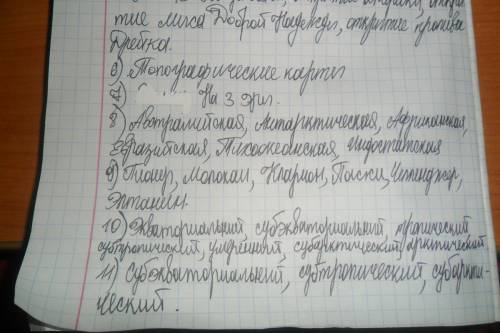 тие мыса Доброй Надежды, открытие пролива
Дрейка.
6) Топографические карты
7) На 3 груп.
8) Австралийская, Антарктическая, Африканская,
Евразийская, Тихоокеанская, Индостанская
9) Пионер, Молокаи, Кларион, Пасхи, Челленджер,
Элтанин.
10) Экваториальный, субэкваториальный, тропический
субтропический, умеренный, субарктический, арктический
11) Субэкваториальный, субтропический, субаркти-
ческий.